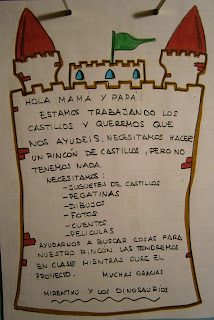 HOLA MAMA Y PAPA:
ESTAMOS TRABAJANDO LOS
CASTILLOS Y QUEREMOS QUE
NOS AYUDEIS. NECESITAMOS HACER
UN RINCÓN DE CASTILLOS, PERO NO
TENEMOS NADA.
NECESITAMOS:
-JUGUETES DE CASTILLOS
-PEGATINAS
-DIBUJOS
-FOTOS
-CUENTOS
-PELICULAS
AYUDARNOS A BUSCAR COSAS PARA
NUESTRO RINCON. LAS TENDREMOS
EN CLASE MIENTRAS DURE EL
PROYECTO. MUCHAS GRACIAS
HIRENTXU Y LOS DINOSAURIOS